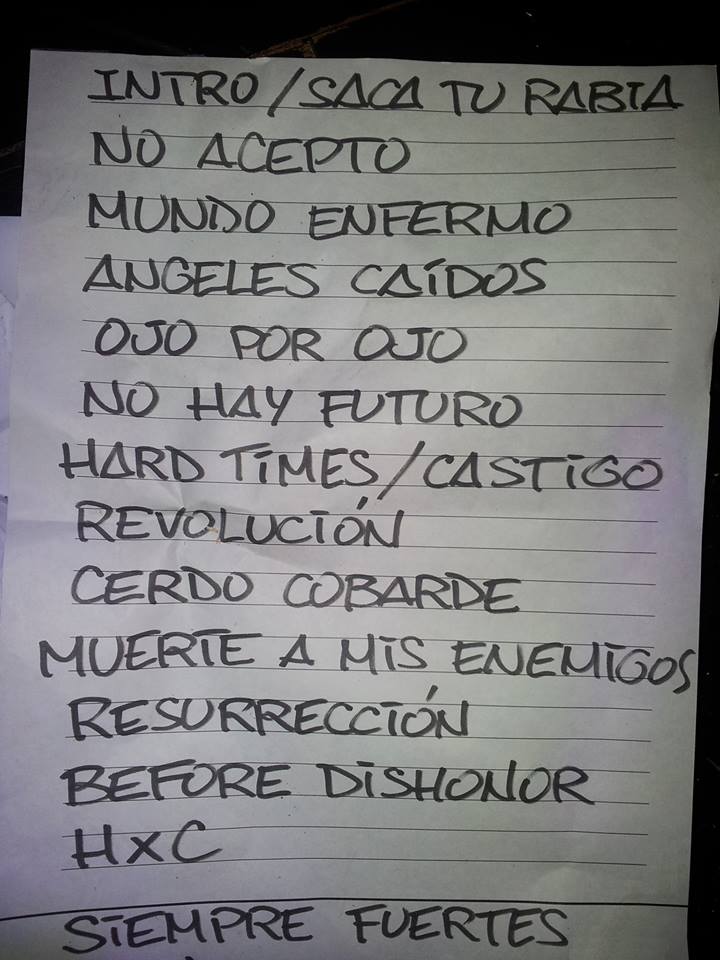 INTRO/SACA TU RABIA
NO ACEPTO
MUNDO ENFERMO
ANGELES CAÍDOS
OJO POR OJO
NO HAY FUTURO
HARD TIMES/CASTIGO
REVOLUCIÓN
CERDO COBARDE
MUERTE A MIS ENEMIGOS
RESURRECCIÓN
BEFORE DISHONOR
HxC
SIEMPRE FUERTES